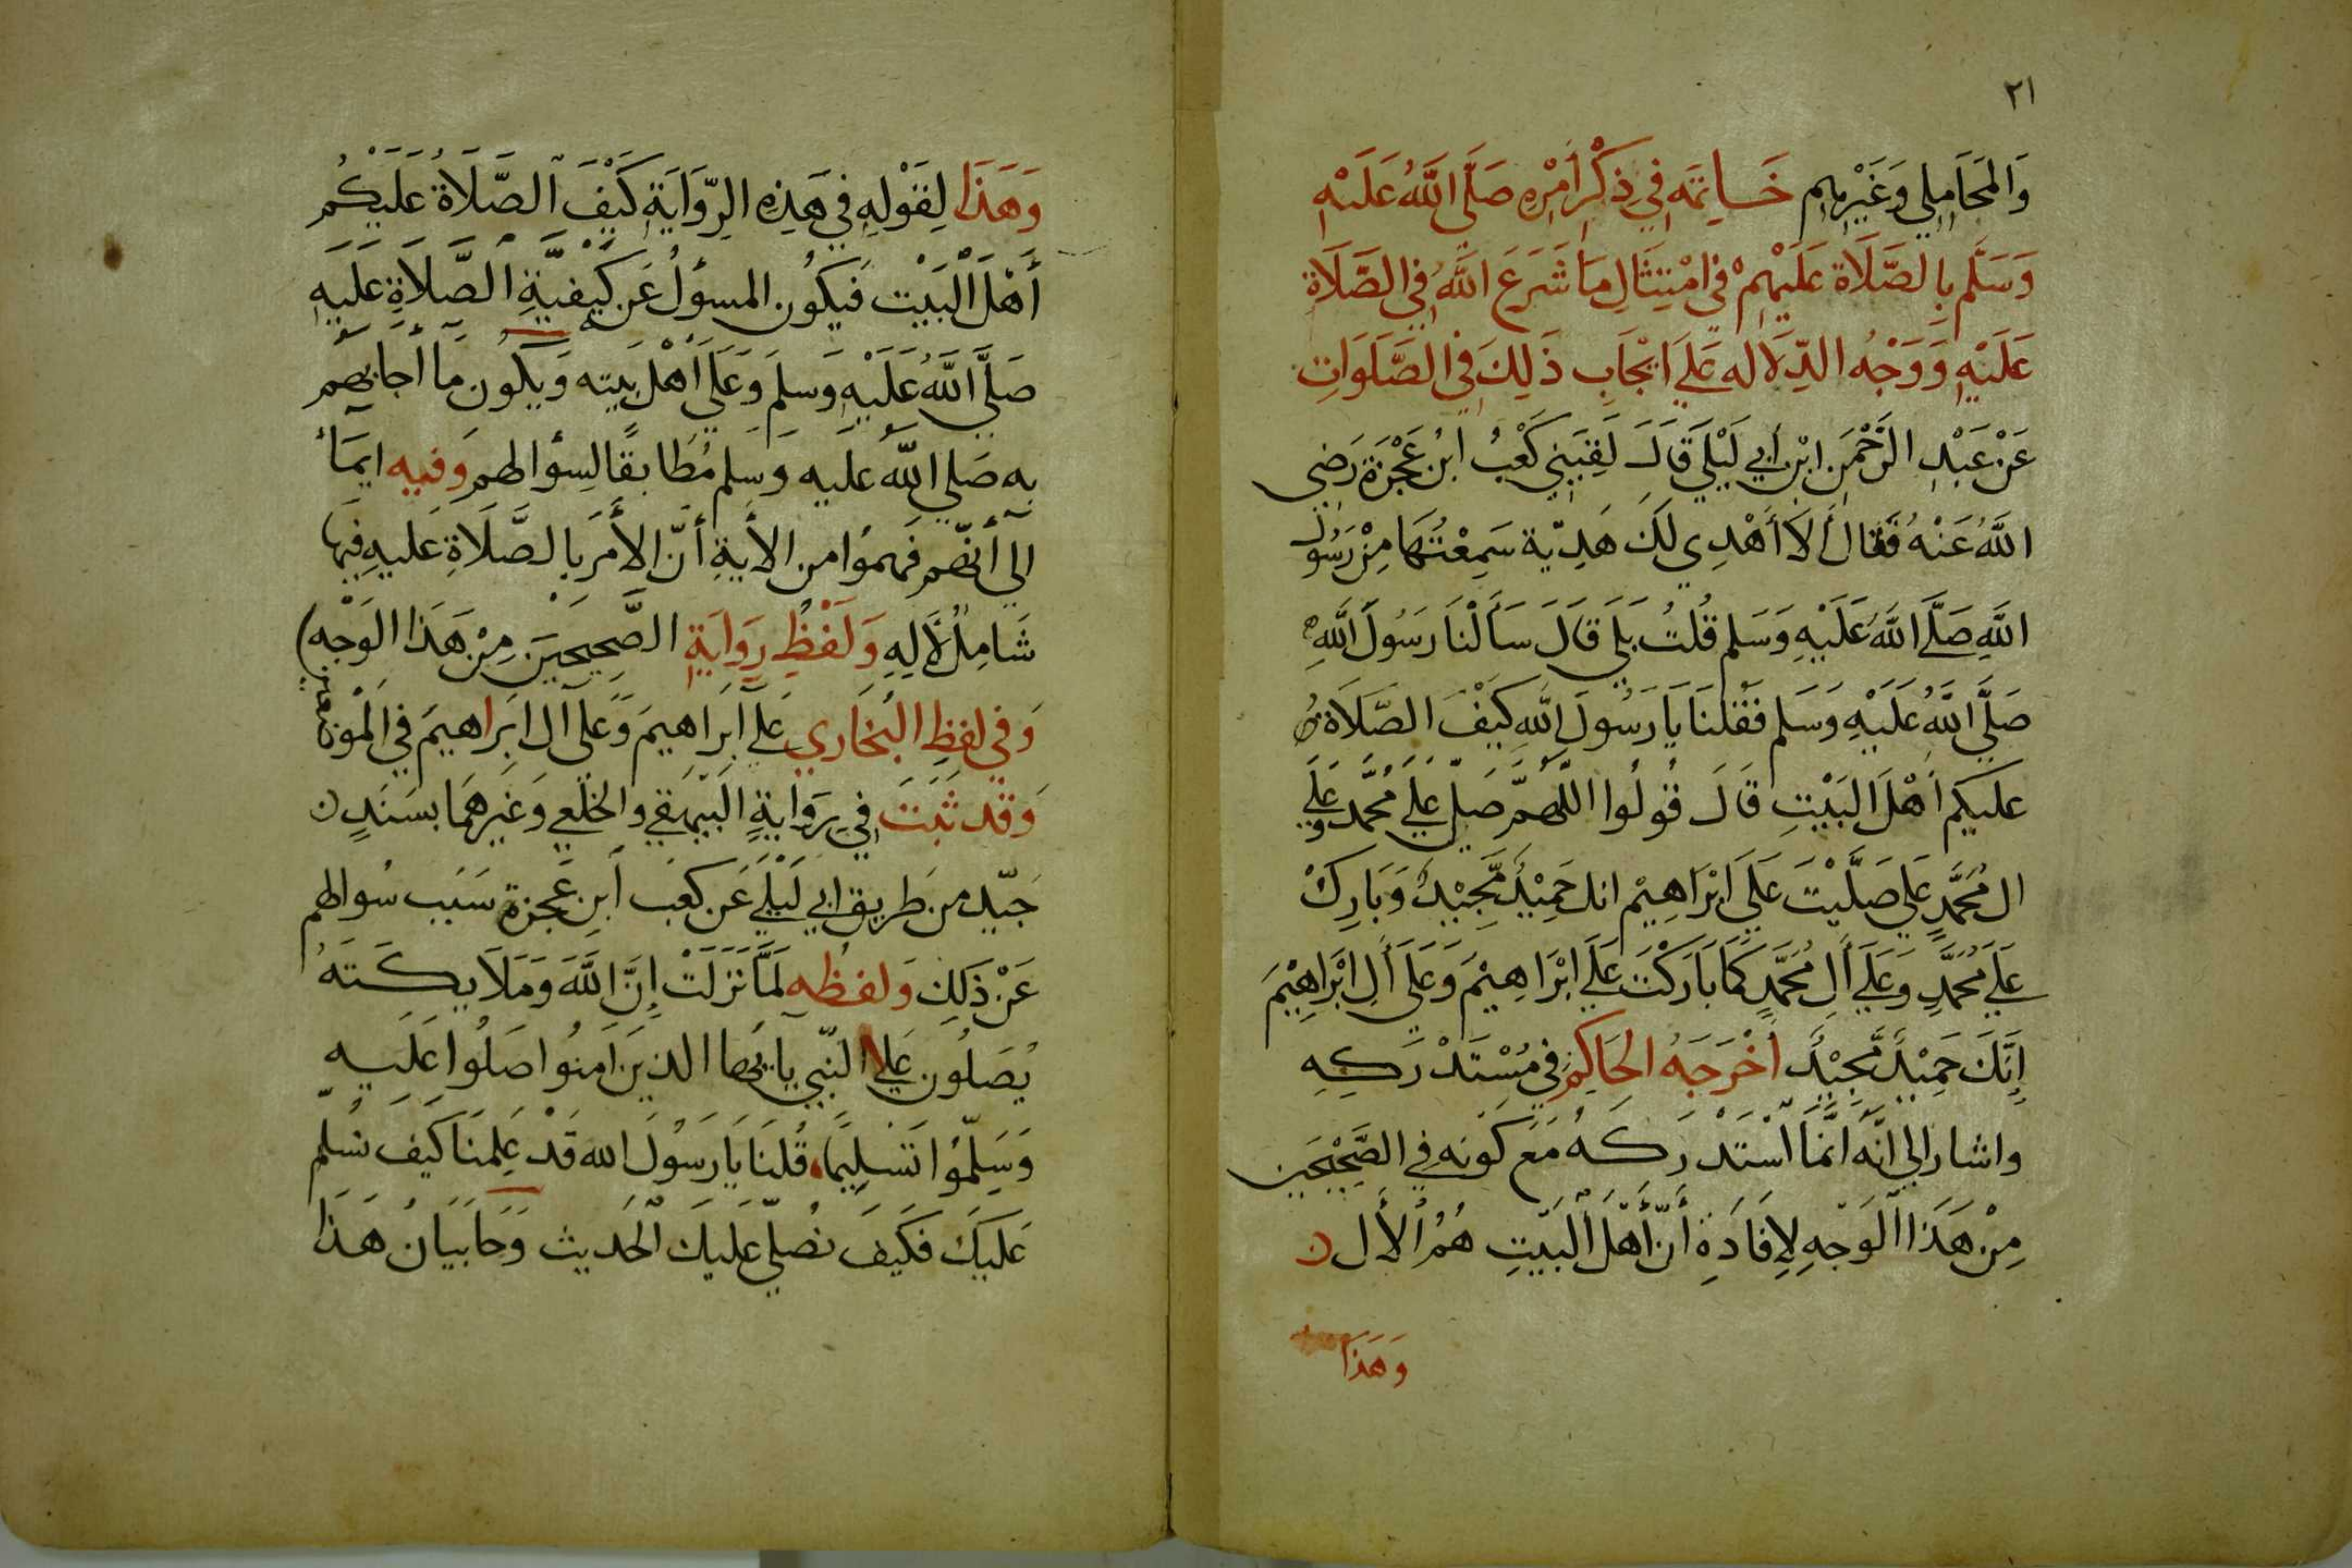 ٢١
وَالمَحَامِلِي وَغَيْرِهِم خَاتِمَه فِي ذِكْرِ أَمْرِهِ صَلَّى اللَّهُ عَلَيْهِ
وَسَلَّم بِالصَّلَاة عَلَيْهِمْ فِي امْتِثَالِ مَا شَرَعَ اللَّهُ فِي الصَّلَاةِ
عَلَيْهِ وَوَجْهُ الدِّلَاله عَلَى ايْجَابِ ذَلِكَ فِي الصَّلَوَاتِ
عَنْ عَبْدِ الرَّحْمَنِ ابْنِ أَبِي لَيْلَى قَالَ لَقِيَنِي كَعْبُ ابْنُ عَجْرَة رَضِيَ
اللَّهُ عَنْهُ فَقَالَ أَلَا أَهْدِي لَكَ هَدِيّة سَمِعْتُهَا مِنْ رَسُولِ
اللَّهِ صَلَّى اللَّهُ عَلَيْهِ وَسَلم قُلتُ بَلَى قَالَ سَأَلْنَا رَسُولَ اللَّهِ
صَلَّى اللَّهُ عَلَيْهِ وَسَلم فَقُلنَا يَا رَسُولَ اللَّهِ كَيْفَ الصَّلَاة
عليكم أَهْلَ البَيْتِ قَالَ قُولُوا اللَّهُمَّ صَلِّ عَلَى مُحَمَّد وَعَلَى
ال مُحَمَّدٍ عَلَى صَلَّيْتَ عَلَى ابْرَاهِيْم انك حَمِيْدٌ مَّجِيْدٌ وَبَارِكْ
عَلَى مُحَمَّدٍ وَعَلَى أَلِ مُحَمَّدٍ كَمَا بَارَكْتَ عَلَى ابْرَاهِيْمَ وَعَلَى أَلِ ابْرَاهِيْمَ
إِنَّكَ حَمِيْدٌ مَّجِيْدٌ أَخْرَجَهُ الحَاكِم فِي مُسْتَدْرَكِهِ
واشار الى انَّه انَّمَا اسْتَدْرَكَهُ مَعَ كَوْنِه فِي الصَّحِيْحَيْن
مِنْ هَذَا الْوَجْهِ لِإِفَادَةِ أَنَّ أَهْلَ الْبَيْتِ هُمُ الأَل
وَهَذَا
وَهَذَا لِقَوْلِهِ فِي هَذِهِ الرِّوَايَةِ كَيْفَ الصَّلَاةُ عَلَيْكُم
أَهْلَ الْبَيْت فَيَكُون المسؤلُ عَن كَيْفِيَّةِ الصَّلَاةِ عَلَيهِ
صَلَّى اللَّهُ عَلَيْهِ وَسلم وَعَلَى أَهْل بَيته وَيكُون مَا أجابهم
به صَلى اللَّه عليه وَسلم مُطَابقًا لسِؤالهم وَفيه ايمَأ
الى أنّهم فَهموُا من الأيةِ أنّ الأَمر بِالصَّلَاةِ عَليهِ فيهَا
شَامِلٌ لِأَلِهِ وَلَفْظُ رِوَايَةِ الصَّحِيحَيْن مِنْ هَذَا الوَجْهِ
وَفي لفظِ البُخَاري عَلى ابَراهيمَ وَعَلى ال ابَراهيمَ في المْوضعين
وَقد ثبَتَ فِي رِوَايَةِ البَيْهَقي والخلَعي وَغَيرهمَا بسَنَدٍ
جَيّد من طريق ابي لَيْلَى عَن كعَب ابن عَجرة سَبَب سُوالهم
عَنْ ذَلِكَ وَلفظه لَمَّا نَزَلَتْ إِنَّ اللَّهَ وَمَلَايكَتَهُ
يُصَلُون عَلى النّبي يا يها الذين امنوُا صَلُوا عَلَيه
وَسَلِّموُا تَسْلِيمًا، قُلنَا يَا رَسُولَ الله قَدْ عَلِمنَا كَيفَ نسُلّم
عَليكَ فكَيفَ نصُلي عَليكَ الحَديث وَجَا بَيَانُ هَذَا